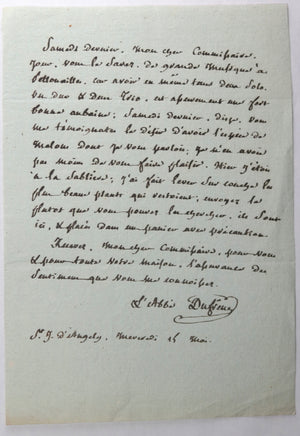 Samedi dernier, mon cher Commissaire,
jour, vous le savez, de grande musique à
car avoir en même tems deux Solo,
un duo & deux Trio, est assurement une fort
bonne aubaine; Samedi dernier, dis-je, vous
me témoignates le désir d'avoir l'espece de
Melons dont je vous parlois, je n'en avois
pas moins de vous faire plaisir. Hier j'étois
à la Sabliere, j'ai fait lever sur couches les
plus beaux plants qui restoient, envoyez le
plutot que vous pouvez les chercher, ils sont
ici, & placés dans un panier avec précaution.
Recevez, mon cher Commissaire, pour vous
& pour toute votre maison, l'assurance des
Sentimens que vous me connoissez.
L'Abbé
St. J. d'Angely, mercredi 15 mai.